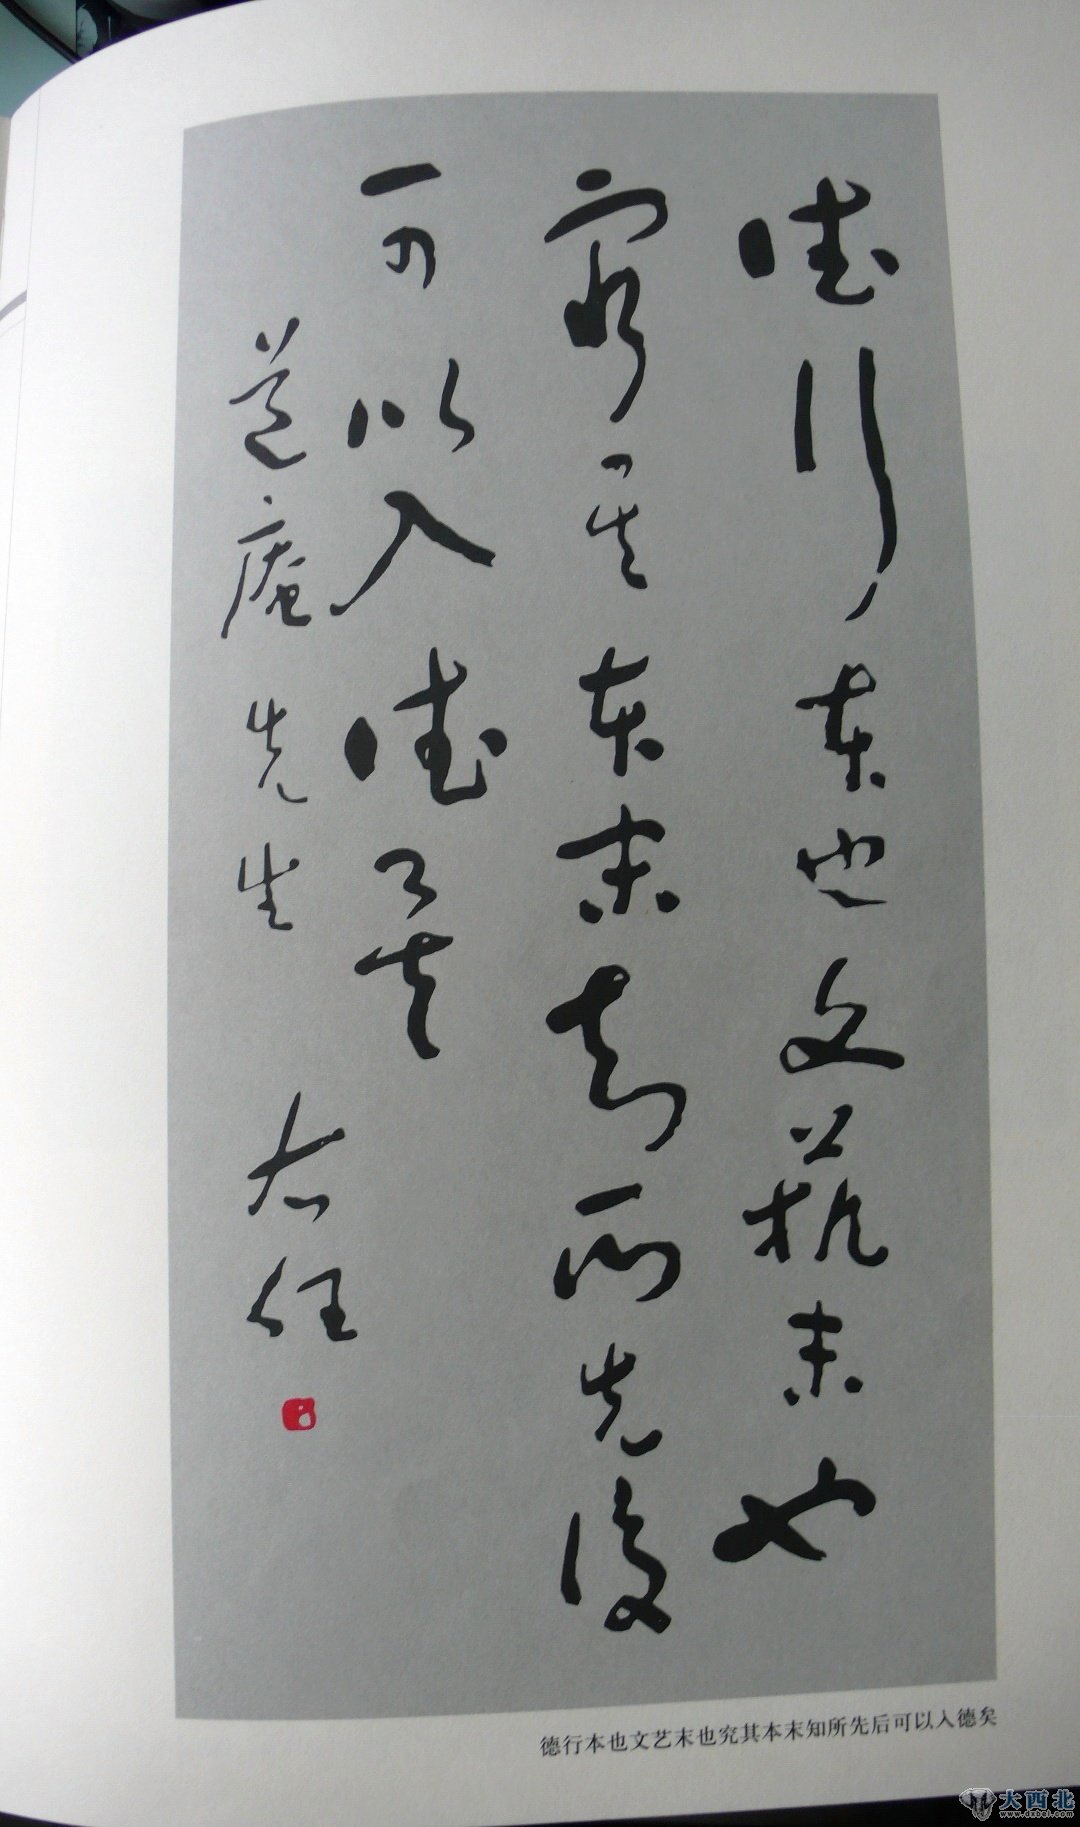 德行本也文藝末也
窮其本末知所先後
可以入德矣
庵先生 右任
德行本也文艺末也究其本末知所先后可以入德矣
大西北
www.dxbei.com